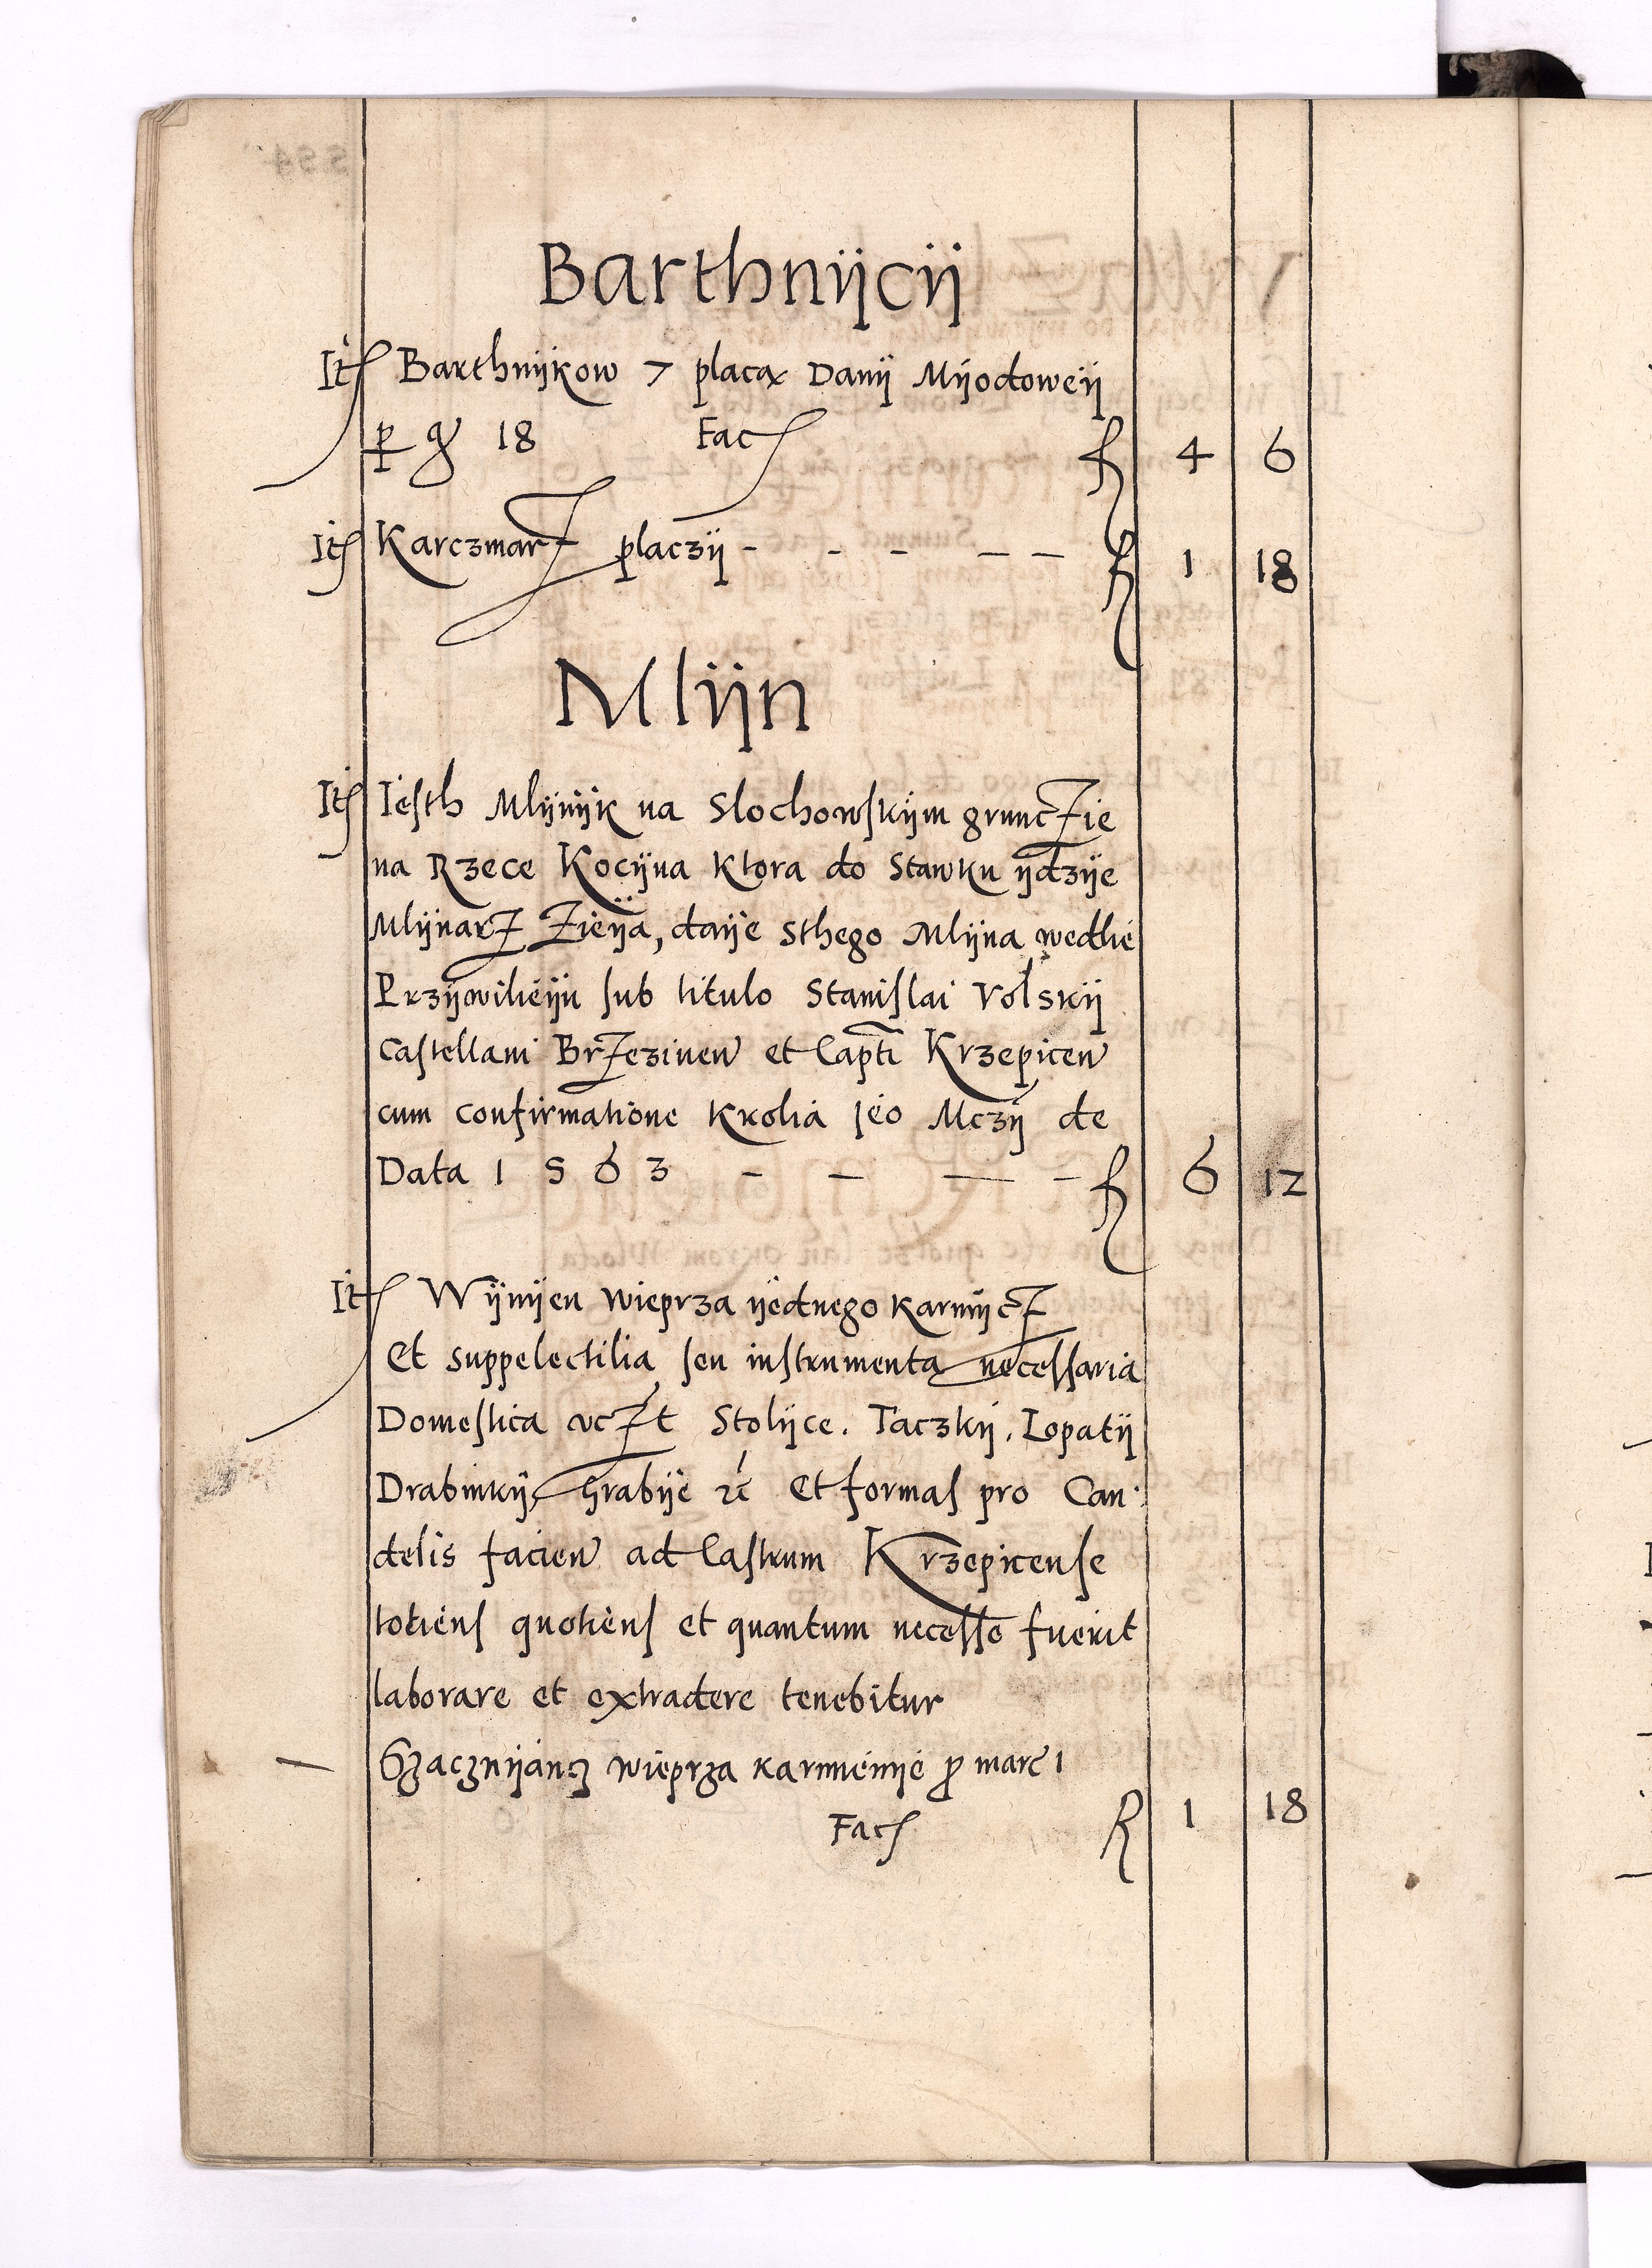 Barthnijcij
It Barthnijkow 7 placą Danij Mijodoweij
per gr 18 Fac f 4 6
It Karczmarz placzij - - - - - f 1 18
Mlijn
It Iesth Mlijnijk na Slochowskijm grunczie
na Rzece Kocijna Ktora do Stawku ijdzije
Mlijnarz Zieija, daije Sthego Mlijna wedlie
Przijwilieiju sub titulo Stanislai Volskij
Castellani Brzezinen et Capti Krzepicen
cum confirmatione Krolia Jeo Mczij de
Data 1563 - - - - f 6 12
It Wijnijen wieprza ijednego karmijcz
Et suppelectilia seu instrumenta necessaria
Domestica uczt Stolijce. Taczkij. Lopatij
Drabinkij, Grabije rc Et formas pro Can
delis facien ad Castrum Krzepicense
totiens quotiens et quantum necesse fuerit
laborare et extradere tenebitur
Szacznijancz wieprza karmienije pro marc 1
Fac f 1 18